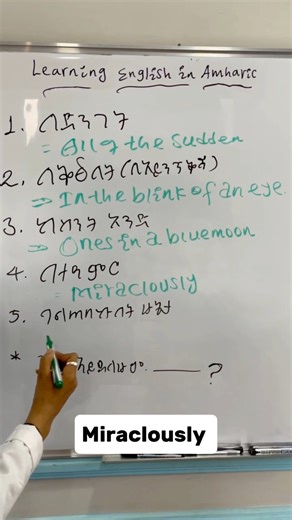 Learning English in Amharic
1. በድንገት
= All of the Sudden
2. በቅፅበት (በአይን ጥቅሻ)
⇒ In the blink of an eye.
3. ከስንት አንዴ
⇒ Ones in a bluemoon
4. በተዓምር
= Miraclously
5.
* ?
Miraclously